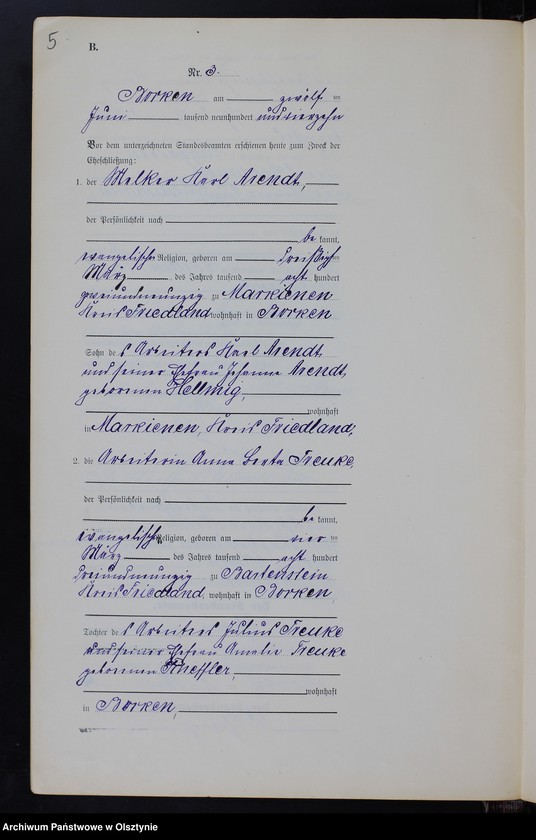 5
B.
Nr. 3.
Borken am zwölf ten
Juni tausend neunhundert und vierzehn
Vor dem unterzeichneten Standesbeamten erschienen heute zum Zweck der
Eheschließung:
1. der Melker Karl Arendt,
der Persönlichkeit nach
be kannt,
evangelischer Religion, geboren am dreißigsten
März des Jahres tausend acht hundert
zweiundneunzig zu Markienen
Kreis Friedland wohnhaft in Borken
Sohn des Arbeiters Karl Arendt
und seiner Ehefrau Johanna Arendt,
geborenen Hellmig,
wohnhaft
in Markienen, Kreis Friedland,
2. die Arbeiterin Anna Berta Treuke,
der Persönlichkeit nach
be kannt,
evangelischer Religion, geboren am vier ten
März des Jahres tausend acht hundert
dreiundneunzig zu Bartenstein
Kreis Friedland, wohnhaft in Borken
Tochter des Arbeiters Julius Treuke
und seiner Ehefrau Amalie Treuke
geborenen
wohnhaft
in Borken,
Archiwum Państwowe w Olsztynie